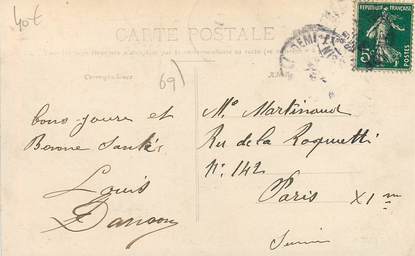 40€
CARTE POSTALE
Correspondance
69)
RÉPUBLIQUE FRANÇAISE
5c
POSTES
bons-jours et
Bonne Santé
Louis
Mo Martinaud
Ru de la Roquetti
No: 142
Paris XI m